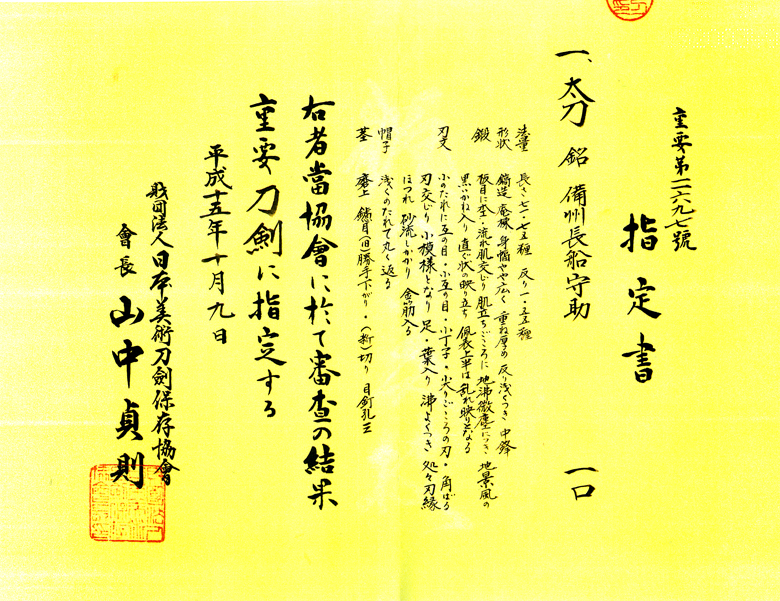 重要第一一六九七號
指定書
一、太刀 銘 備州長船守助 一口
法量 長さ七一・七五糎 反り一・五五糎
形状 鎬造 庵棟 身幅やや広く 重ね厚め 反り浅くつき 中鋒
鍛 板目に杢・流れ肌交じり 肌立ちごころに 地沸微塵につき 地景風の
黒いかね入り 直ぐ状の映り立ち 佩表上半は乱れ映りとなる
刃文 小のたれに互の目・小互の目・小丁子・尖りごころの刃・角ばる
刃交じり 小模様となり 足・葉入り 沸よくつき 処々刃縁
ほつれ 砂流しかかり 金筋入る
帽子 浅くのたれて丸く返る
茎 磨上 鑢目(旧)勝手下がり・(新)切り 目釘孔三
右者當協會に於て審査の結果
重要刀剣に指定する
平成十五年十月九日
財団法人日本美術刀剣保存協會
會長 山中貞則